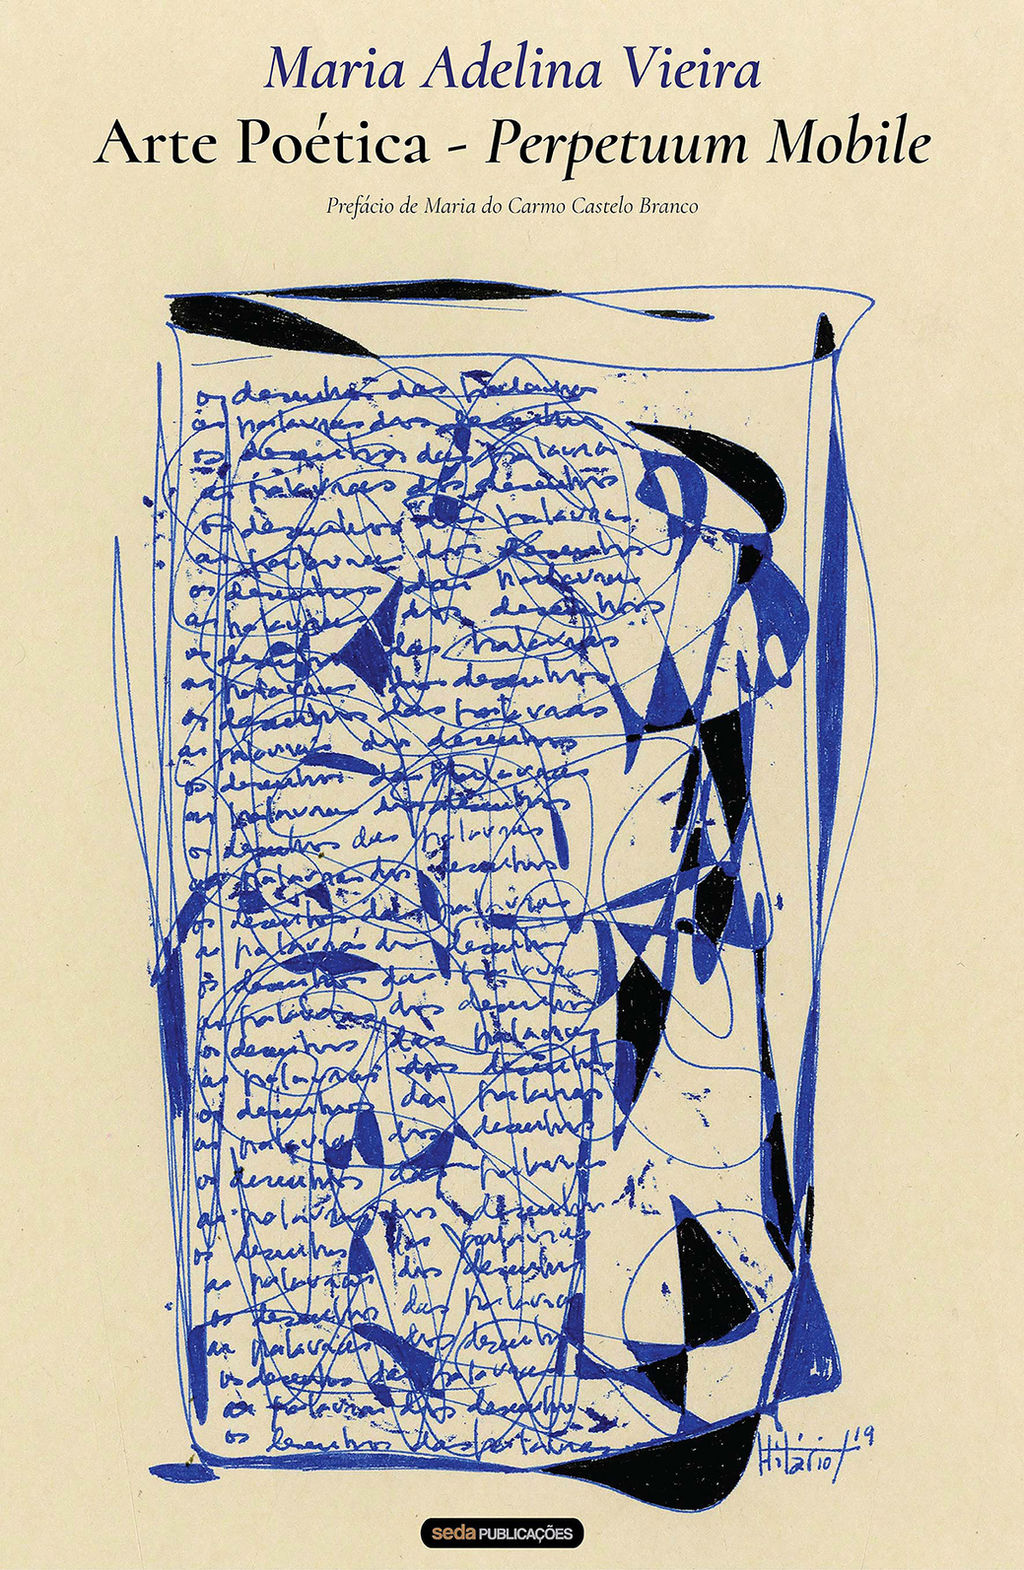 Maria Adelina Vieira
Arte Poética - Perpetuum Mobile
Prefácio de Maria do Carmo Castelo Branco
os desenhos das palavras
as palavras dos desenhos
os desenhos das palavras
as palavras dos desenhos
os desenhos das palavras
as palavras dos desenhos
os desenhos das palavras
as palavras dos desenhos
os desenhos das palavras
as palavras dos desenhos
os desenhos das palavras
as palavras dos desenhos
os desenhos das palavras
as palavras dos desenhos
os desenhos das palavras
as palavras dos desenhos
os desenhos das palavras
as palavras dos desenhos
os desenhos das palavras
as palavras dos desenhos
os desenhos das palavras
as palavras dos desenhos
os desenhos das palavras
as palavras dos desenhos
os desenhos das palavras
as palavras dos desenhos
os desenhos das palavras
as palavras dos desenhos
os desenhos das palavras
as palavras dos desenhos
os desenhos das palavras
as palavras dos desenhos
os desenhos das palavras
Hilário 19
seda PUBLICAÇÕES